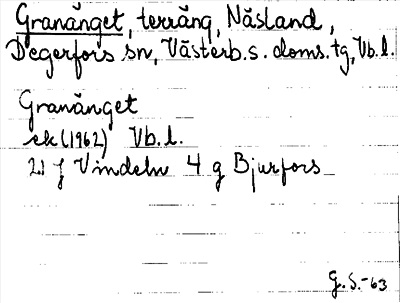 Granänget, terräng, Näsland,
Degerfors sn, Västerb.s. doms. tg, Vb.l.
Granänget
ek (1962) Vb.l.
21 J Vindeln 4 g Bjurfors
G.S.-63